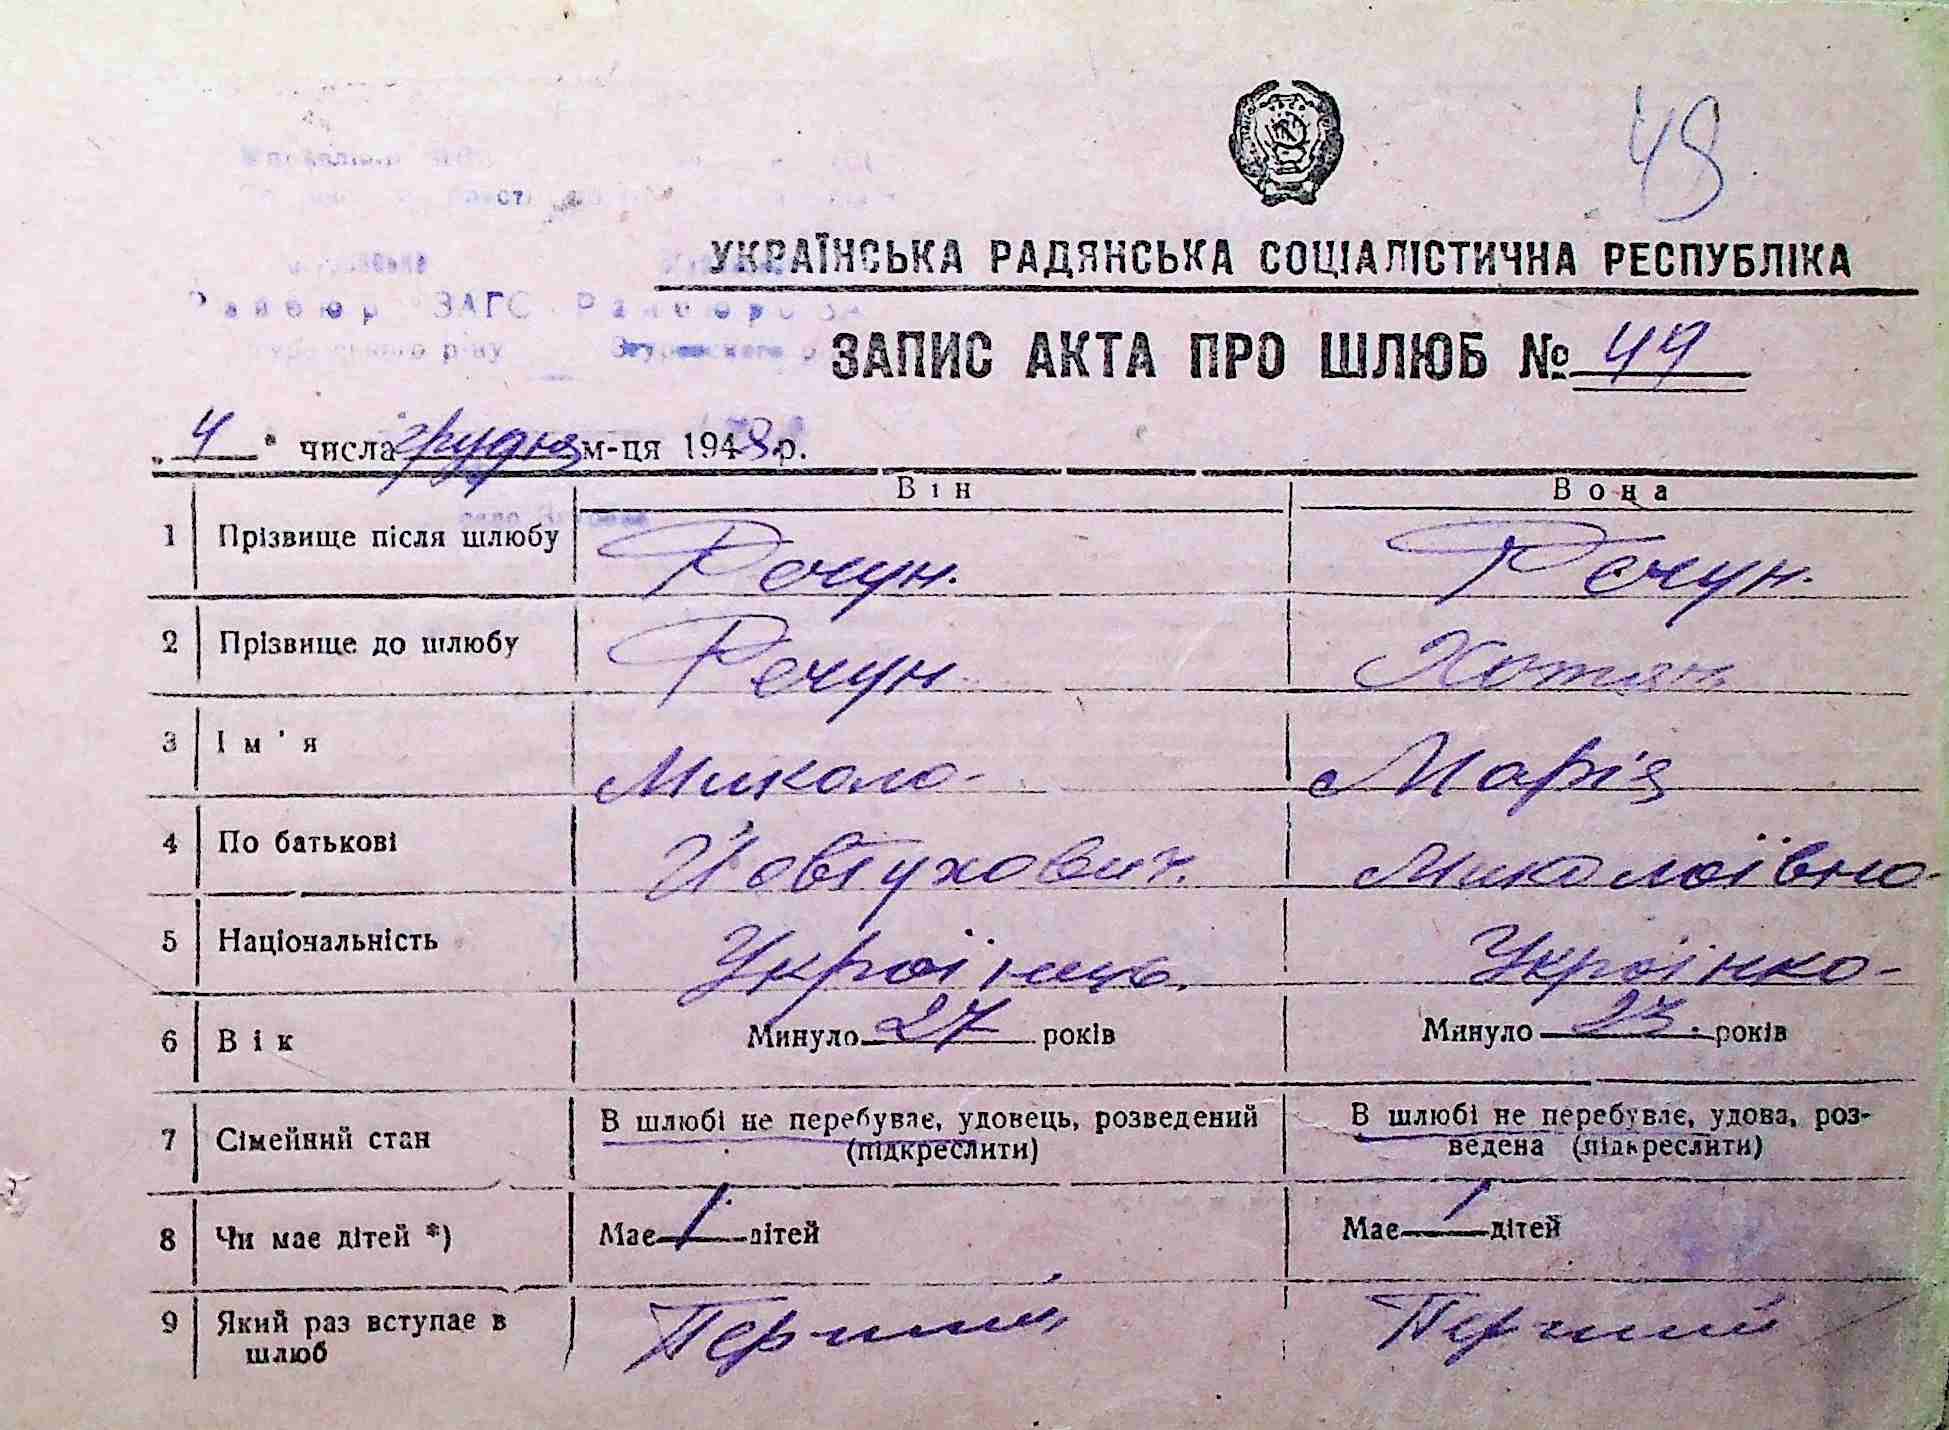 48
УКРАЇНСЬКА РАДЯНСЬКА СОЦІАЛІСТИЧНА РЕСПУБЛІКА
Райбюр ЗАГС Райбюро ЗА
ЗАПИС АКТА ПРО ШЛЮБ № 49
„4“ числа грудня м-ця 1948 р.
Він Вона
1 Прізвище після шлюбу Речун. Речун.
2 Прізвище до шлюбу Речун Хотян
3 Ім'я Микола Марія
4 По батькові Йовтухович. Миколаївна
5 Національність Українець. Українка
6 Вік Минуло 27 років Минуло 23 років
7 Сімейний стан В шлюбі не перебуває, удовець, розведений В шлюбі не перебуває, удова, роз-
(підкреслити) ведена (підкреслити)
8 Чи має дітей *) Має 1 дітей Має 1 дітей
9 Який раз вступає в Перший Перший
шлюб